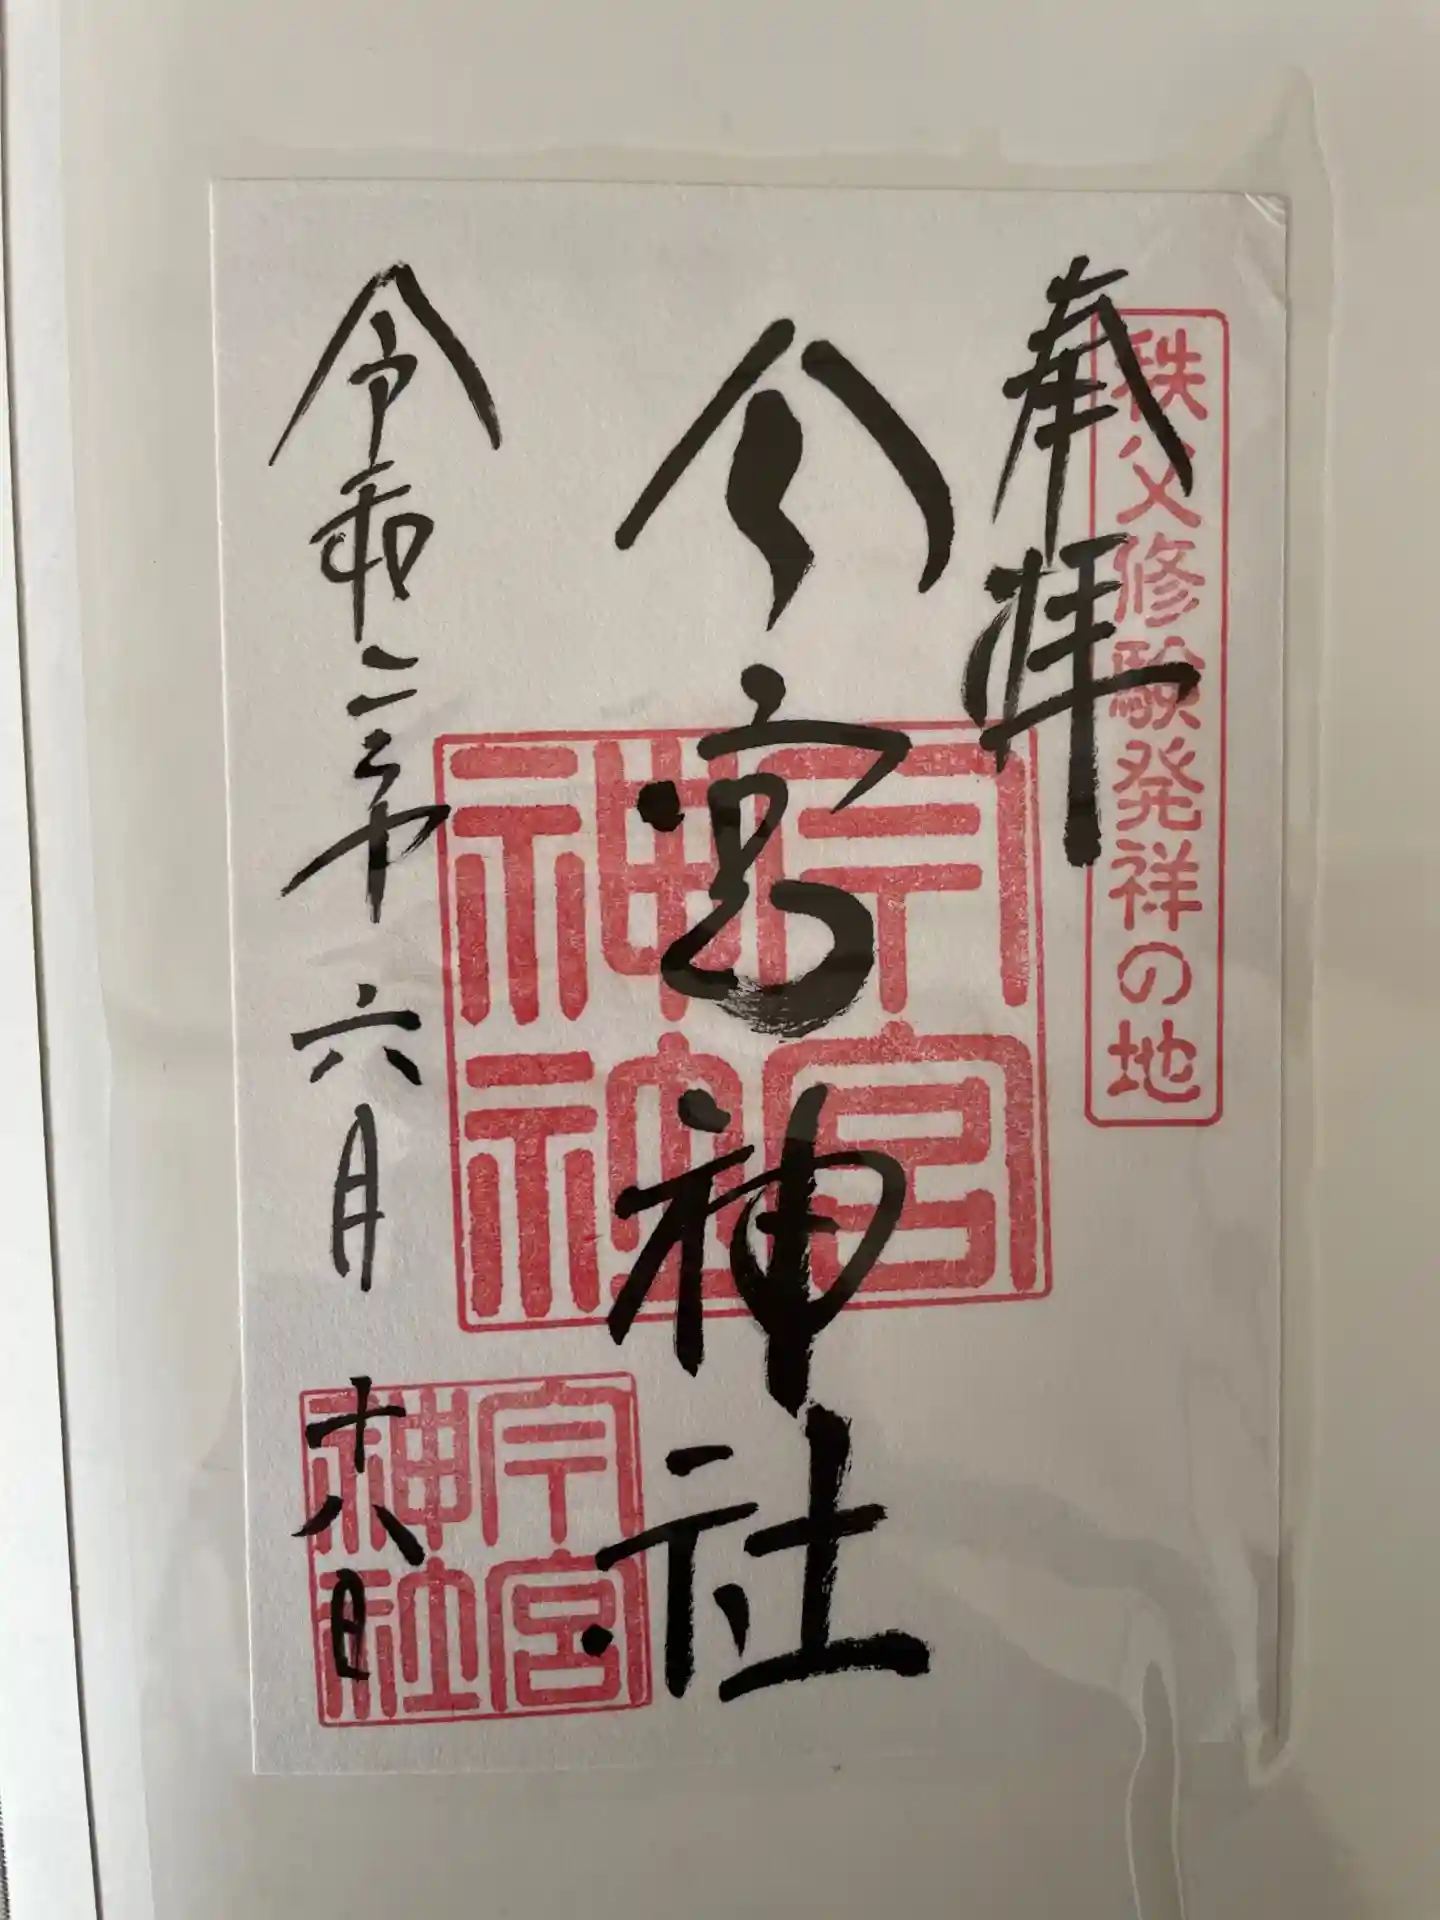 秩父修験発祥の地
奉拝
今宮神社
今宮
神社
令和二年六月十八日
今宮
神社